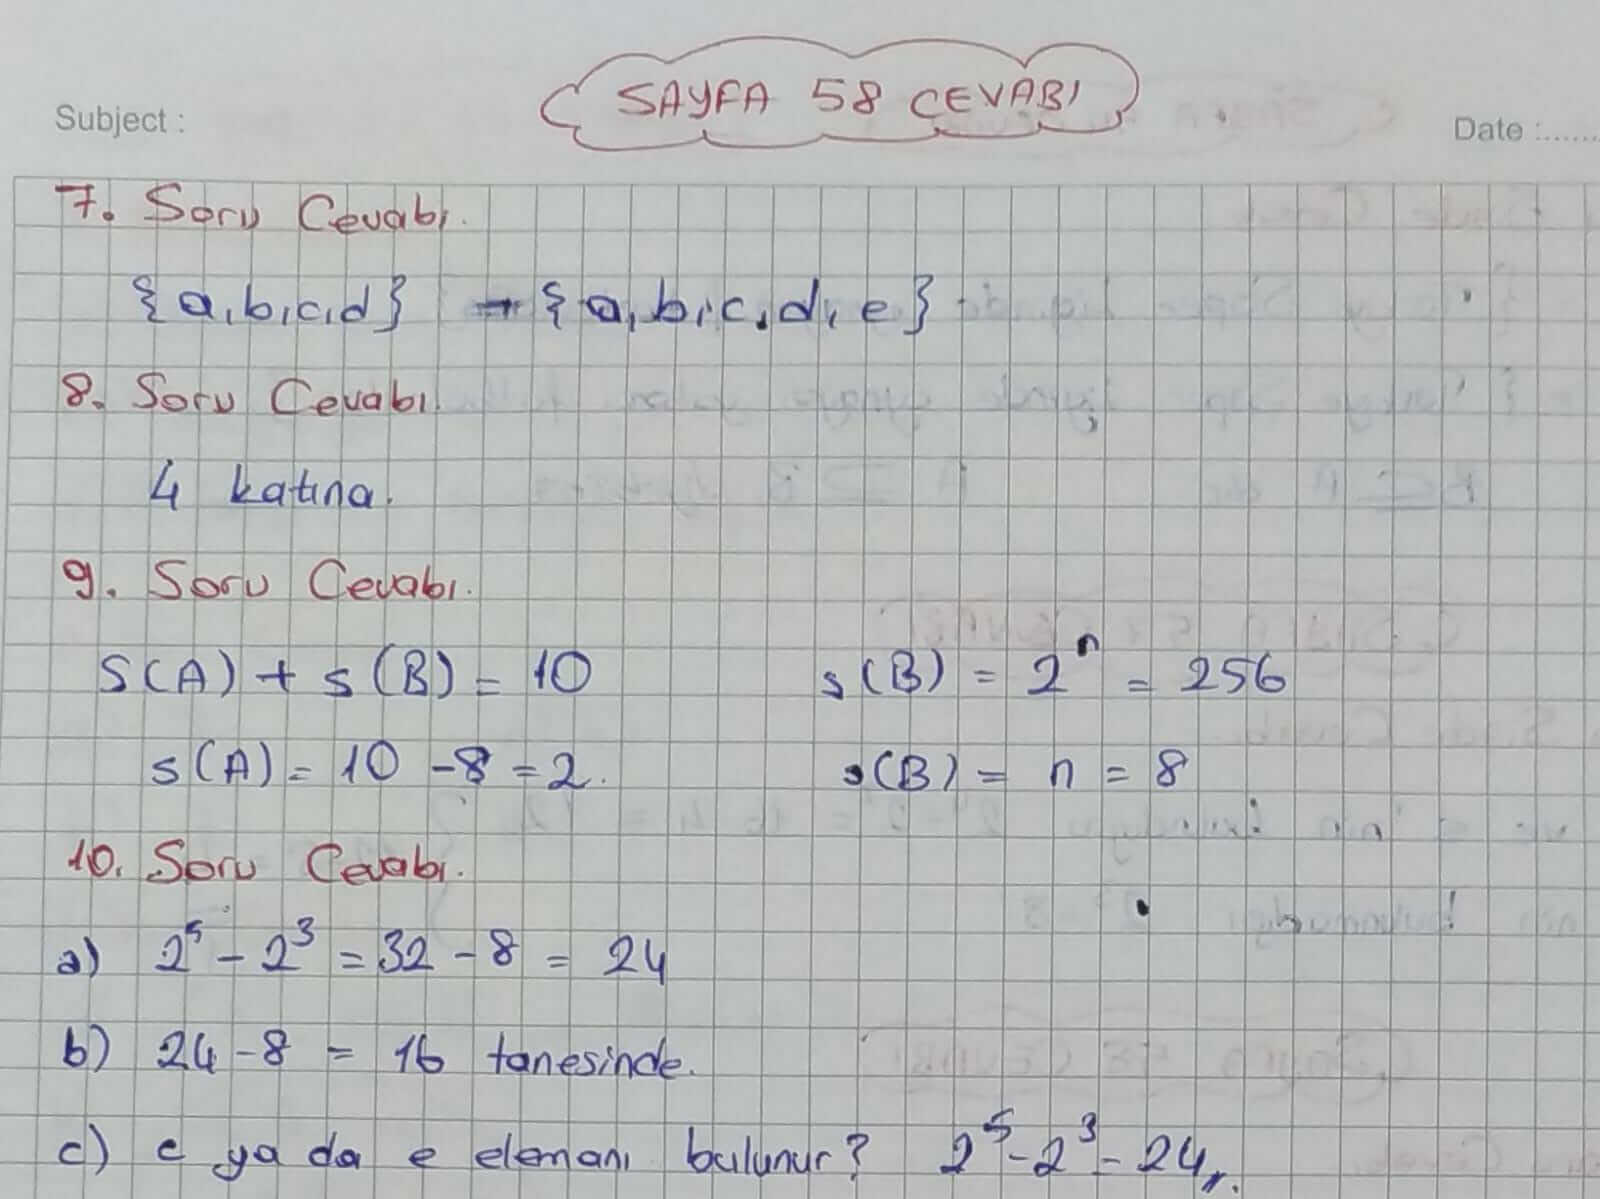 SAYFA 58 CEVABI
Subject :
Date :.......
7. Soru Cevabı.
{a,b,c,d} - {a,b,c,d,e}
8. Soru Cevabı.
4 katına.
9. Soru Cevabı.
S(A) + s(B) = 10 s(B) = 2ⁿ = 256
s(A) = 10 - 8 = 2. s(B) = n = 8
10. Soru Cevabı.
a) 2⁵ - 2³ = 32 - 8 = 24
b) 24 - 8 = 16 tanesinde.
c) c ya da e elemanı bulunur? 2⁵ - 2³ - 24,,.